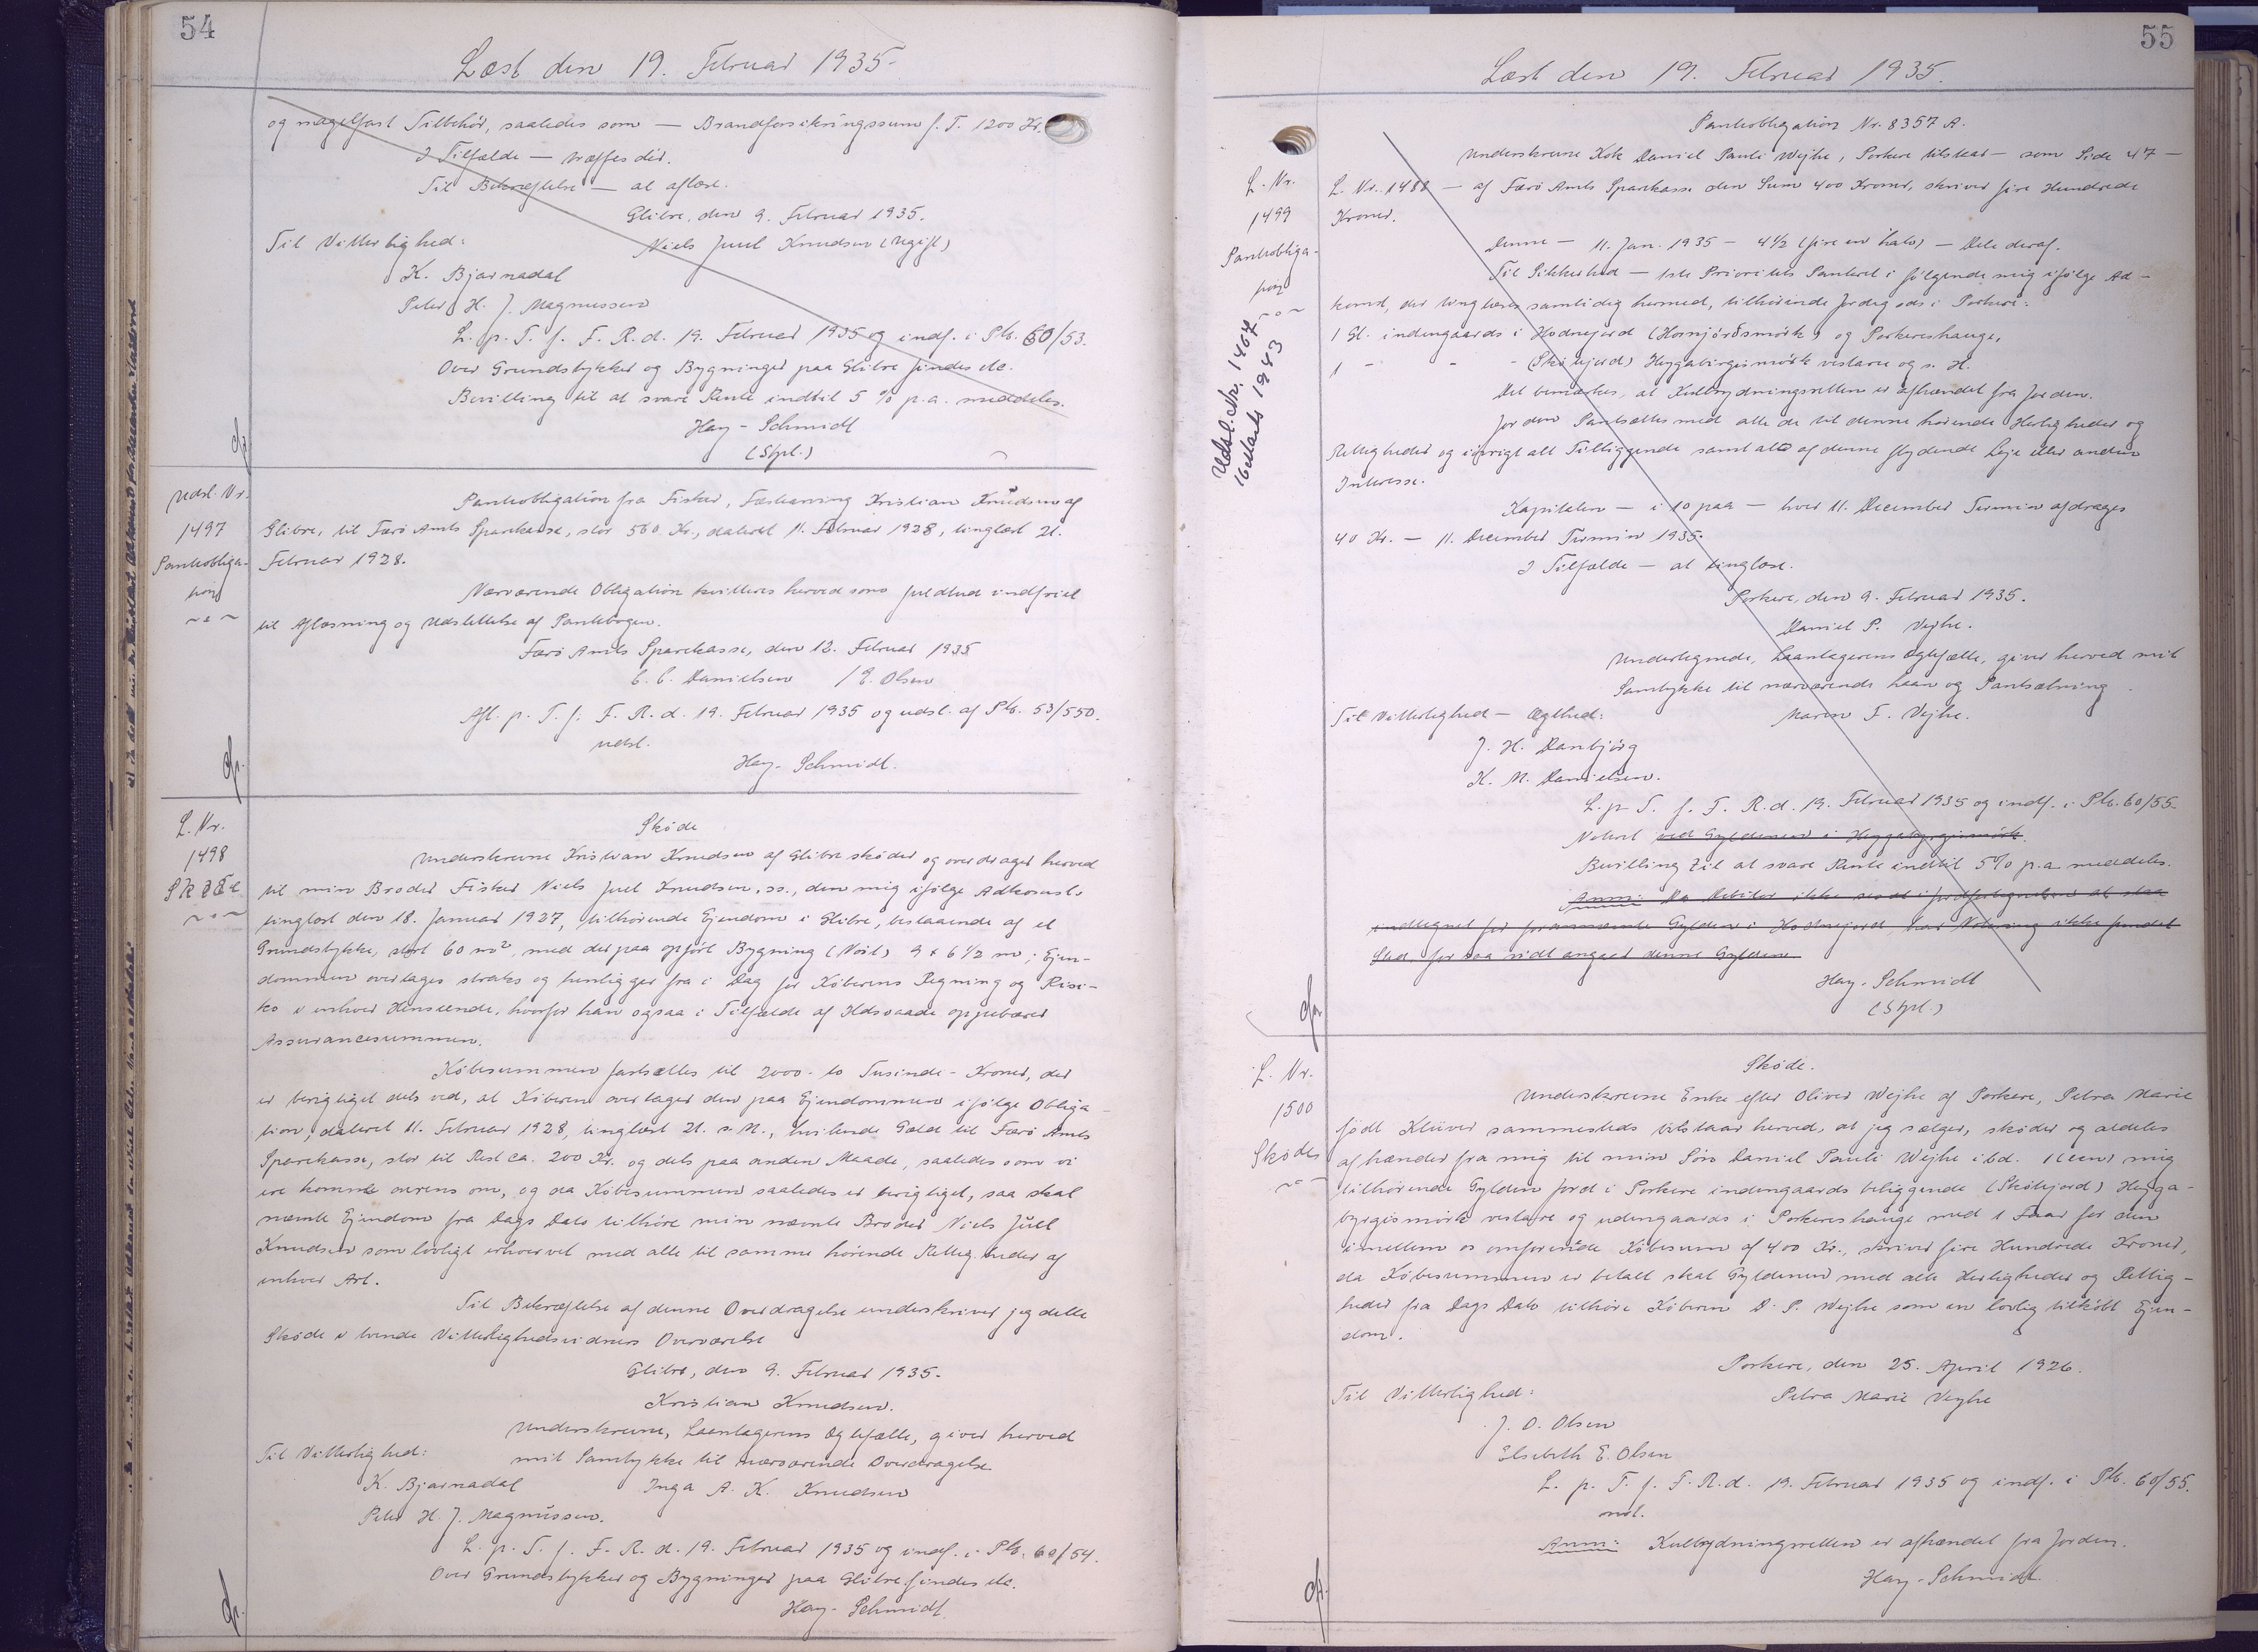 54
Læst den 19. Februar 1935.
og nagelfast Tilbehör, saaledes som — Brandforsikringssum f. T. 1200 Kr.
I Tilfælde — træffes dér.
Til Bekræftelse — at aflæse.
Glibre, den 9. Februar 1935.
Til Vitterlighed:
Niels Juul Knudsen (Ugift)
K. Bjarnadal
Peter H. J. Magnussen
L. p. T. f. F. R. d. 19. Februar 1935 og indf. i Pb. 60/53.
Over Grundstykker og Bygninger paa Glibre findes etc.
Bevilling til at svare Rente indtil 5 % p.a. meddeles.
Hay-Schmidt
(Stpl.)
Udsl. Nr.
1497
Pantobliga-
tion
Pantobligation fra Fisker, Færkarving Kristian Knudsen af
Glibre, til Færö Amts Sparekasse, stor 500 Kr., dateret 11. Februar 1928, tinglæst 21.
Februar 1928.
Nærværende Obligation kvitteres herved som fuldtud indfriet
til Aflæsning og Udslettelse af Pantebogen.
Færö Amts Sparekasse, den 12. Februar 1935
C. C. Danielsen / E. Olsen
Afl. p. T. f. F. R. d. 19. Februar 1935 og udsl. af Pb. 53/550.
udsl.
Hay-Schmidt.
L. Nr.
1498
Sköde
Sköde
Underskrevne Kristian Knudsen af Glibre sköder og overdrager herved
til min Broder Fisker Niels Juul Knudsen, ss., den mig ifölge Adkomst
tinglæst den 18. Januar 1927, tilhörende Ejendom i Glibre, bestaaende af et
Grundstykke, stort 60 m², med derpaa opfört Bygning (Nöst) 9 x 6 1/2 m; Ejen-
dommen overtages straks og henligger fra i Dag for Köberens Regning og Risi-
ko i enhver Henseende, hvorfor han ogsaa i Tilfælde af Ildsvaade oppebærer
Assurancesummen.
Köbesummen fastsættes til 2000 - to Tusinde - Kroner, der
er berigtiget dels ved, at Köberen overtager den paa Ejendommen ifölge Obliga-
tion, dateret 11. Februar 1928, tinglæst 21. s. M., hvilende Gæld til Færö Amts
Sparekasse, stor til Rest ca. 200 Kr. og dels paa anden Maade, saaledes som vi
ere komne overens om, og da Köbesummen saaledes er berigtiget, saa skal
nævnte Ejendom fra Dags Dato tilhöre min nævnte Broder Niels Juul
Knudsen som lovligt erhvervet med alle til samme hörende Rettigheder af
enhver Art.
Til Bekræftelse af denne Overdragelse underskriver jeg dette
Sköde i tvende Vitterlighedsvidners Overværelse
Glibre, den 9. Februar 1935.
Kristian Knudsen.
Underskrevne, Laantagerens Ægtefælle, giver herved
Til Vitterlighed:
mit Samtykke til nærværende Overdragelse
K. Bjarnadal
Inga A. K. Knudsen
Peter H. J. Magnussen.
L. p. T. f. F. R. d. 19. Februar 1935 og indf. i Pb. 60/54.
Over Grundstykker og Bygninger paa Glibre findes etc.
Hay-Schmidt
55
Læst den 19. Februar 1935.
L. Nr.
1499
Pantobliga-
tion
Udsl. Nr. 1467
16 Marts 1943
Pantobligation Nr. 8357 A.
Underskrevne Kok Daniel Pauli Wejhe, Porkere tilstaar — som Side 47 —
L. Nr. 1488 — af Færö Amts Sparekasse den Sum 400 Kroner, skriver fire Hundrede
Kroner.
Denne — 11. Jan. 1935 — 4 1/2 (fire en halv) — Dele deraf.
Til Sikkerhed — 1ste Prioritets Panteret i fölgende mig ifölge Ad-
komst, der tinglæses samtidig hermed, tilhörende Jordegods i Porkere:
1 Gl. indengaards i Hodnejord (Hornjórðsmörk) og Porkereshauge,
1 - - - (Skökujord) Heygabirgismörk vestare og s. H.
Det bemærkes, at Kulbrydningsretten er afhændet fra Jorden.
Jorden Pantsættes med alle de til denne hörende Herligheder og
Rettigheder og iövrigt alt Tilliggende samt alt af denne flydende Leje eller anden
Interesse.
Kapitalen — i 10 paa — hver 11. December Termin afdrages
40 Kr. — 11. December Termin 1935.
I Tilfælde — at tinglæse.
Porkere, den 9. Februar 1935.
Daniel P. Vejhe.
Undertegnede, Laantagerens Ægtefælle, giver herved mit
Samtykke til nærværende Laan og Pantsætning.
Til Vitterlighed — Ægthed:
Maren F. Vejhe.
J. H. Danbjörg
K. M. Danielsen.
L. p. T. f. F. R. d. 19. Februar 1935 og indf. i Pb. 60/55.
Noteret ved Gyldenen i Heygabyrgismörk.
Bevilling til at svare Rente indtil 5 % p.a. meddeles.
Anm: Da Debitor ikke i Jordfortegnelsen at staa
indtegnet for forannævnte Gylden i Hodnejord har Notering ikke fundet
Sted for saa vidt angaar denne Gylden.
Hay-Schmidt
(Stpl.)
L. Nr.
1500
Sköde
Sköde.
Underskrevne Enke efter Oliver Wejhe af Porkere, Petra Marie
födt Klüver sammesteds tilstaar herved, at jeg sælger, sköder og aldeles
afhænder fra mig til min Sön Daniel Pauli Wejhe ibd. 1 (een) mig
tilhörende Gylden Jord i Porkere indengaards beliggende (Skökujord) Heyga-
byrgismörk vestare og udengaards i Porkereshauge med 1 Faar for den
imellem os omforenede Köbesum af 400 Kr., skriver fire Hundrede Kroner,
da Köbesummen er betalt skal Gyldenen med alle Herligheder og Rettig-
heder fra Dags Dato tilhöre Köberen D. P. Wejhe som en lovlig tilköbt Ejen-
dom.
Porkere, den 25. April 1926.
Til Vitterlighed:
Petra Marie Vejhe
J. O. Olsen
Elsebeth E. Olsen
L. p. T. f. F. R. d. 19. Februar 1935 og indf. i Pb. 60/55.
Anm: Kulbrydningsretten er afhændet fra Jorden.
Hay-Schmidt.